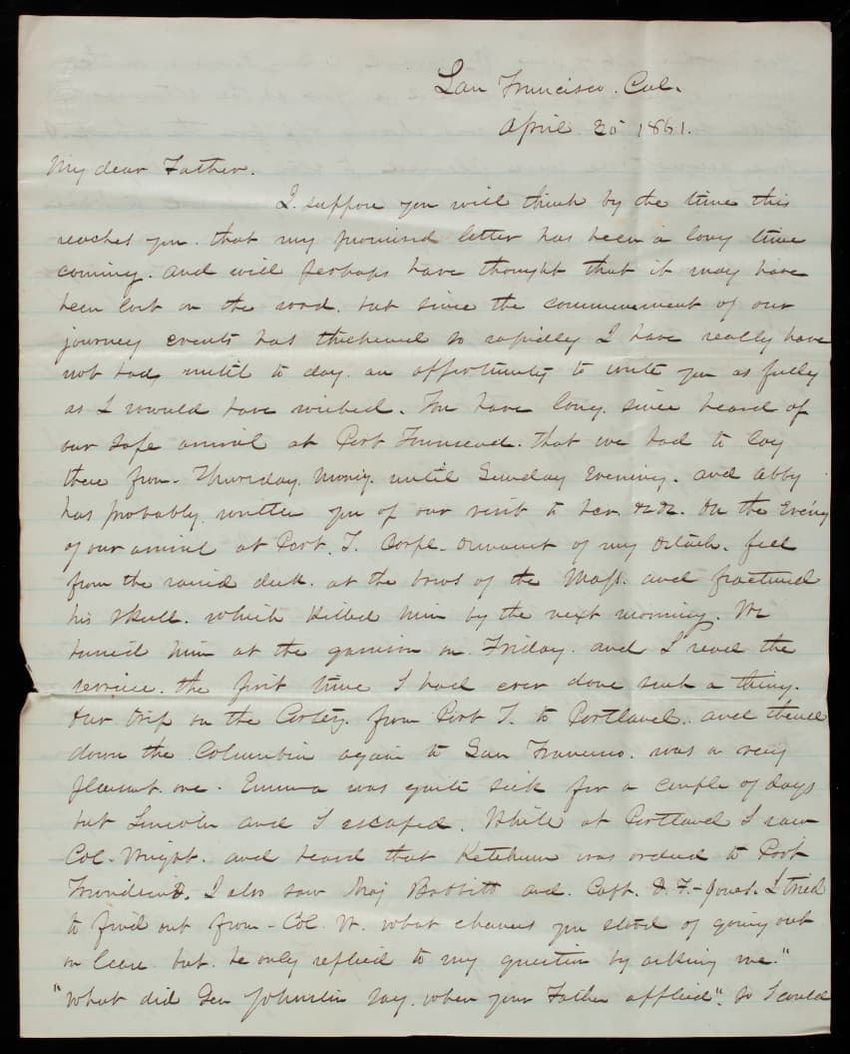 San Francisco. Cal.
April 25 1861.
My dear Father.
I suppose you will think by the time this
reaches you. that my promised letter has been a long time
coming. and will perhaps have thought that it may have
been lost on the road. but since the commencement of our
journey events has thickened so rapidly I have really have
not had, until to day. an opportunity to write you as fully
as I would have wished. You have long since heard of
our safe arrival at Port Townsend. that we had to lay
there from Thursday. Morng. until Sunday Evening. and Abby
has probably written you of our visit to her &c &c. On the Eve'ng
of our arrival at Port. T. Corpl. of my Detach. fell
from the deck. at the bows of the Mass. and fractured
his skull. which killed him by the next morning. We
buried him at the garrison on Friday. and I read the
service. the first time I had ever done such a thing.
Our trip on the Cortez. from Port T. to Portland. and thence
down the Columbia again to San Francisco. was a very
pleasant one. Emma was quite sick for a couple of days
but Lincoln and I escaped. While at Portland I saw
Col. Wright. and heard that Ketchum was ordered to Port
Townsend. I also saw Maj Babbitt and. Capt. D. F. Jones. I tried
to find out from Col. W. what chances you stood of going out
on leave. but. he only replied to my question by asking me."
"What did Gen Johnston say. when your Father applied". So I could